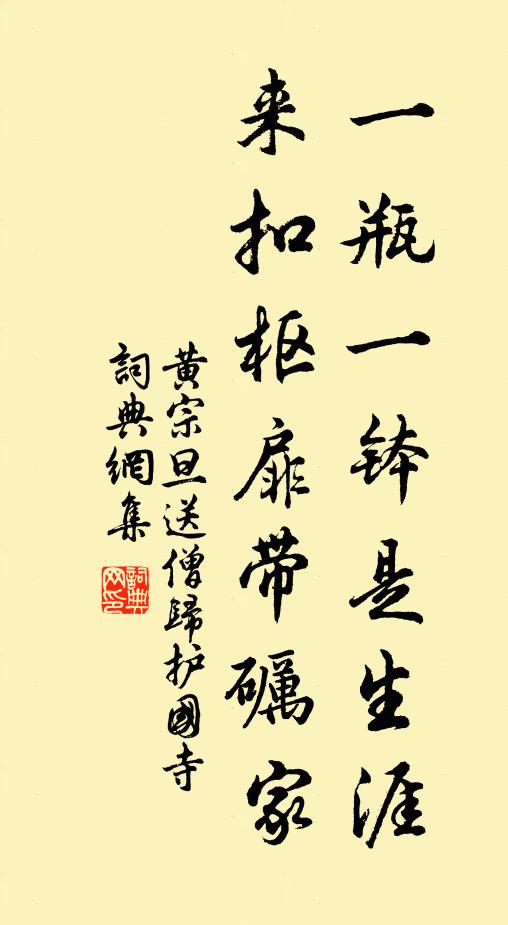 一瓶一钵是生涯
来扣枢扉带礪家
黄宗旦送僧歸护國寺
詞典網集
詞典網印